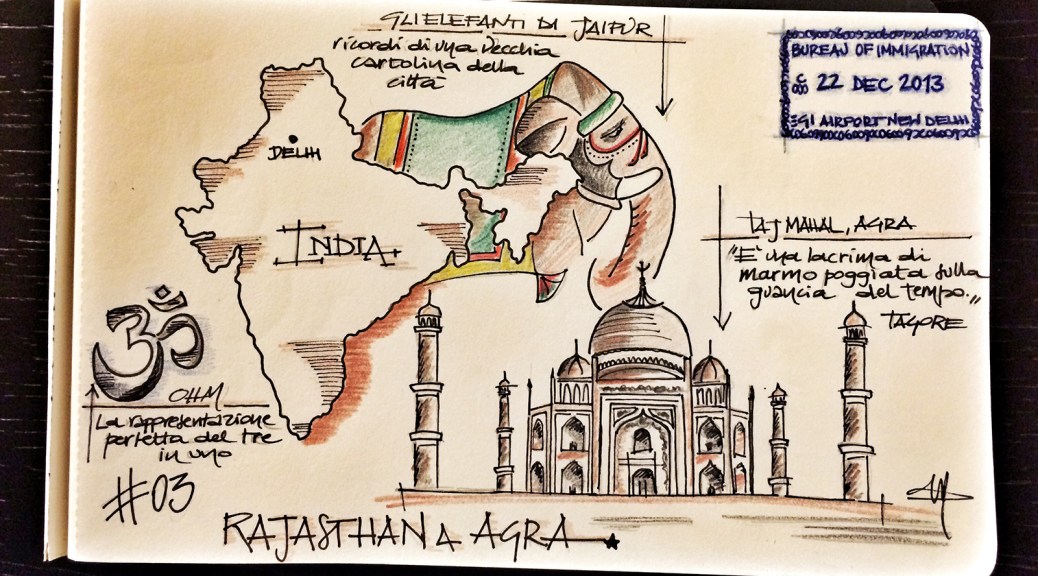 GLI ELEFANTI DI JAIPUR
ricordi di una vecchia
cartolina della
città
BUREAU OF IMMIGRATION
22 DEC 2013
GI AIRPORT NEW DELHI
DELHI
INDIA
TAJ MAHAL, AGRA
"È una lacrima di
marmo poggiata sulla
guancia del tempo."
TAGORE
ॐ
OHM
La rappresentazione
perfetta del tre
in uno
#03
RAJASTHAN & AGRA